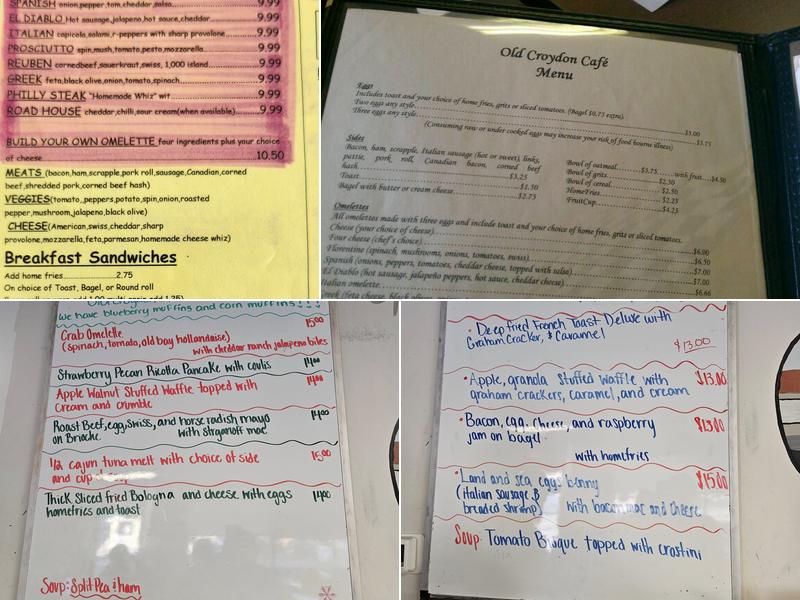 SPANISH onion,pepper,tom,cheddar,salsa 9.99
EL DIABLO Hot sausage,jalapeno,hot sauce,cheddar 9.99
ITALIAN capicola,salami,r-peppers with sharp provolone 9.99
PROSCIUTTO spin,mush,tomato,pesto,mozzarella 9.99
REUBEN cornedbeef,sauerkraut,swiss, 1,000 island 9.99
GREEK feta,black olive,onion,tomato,spinach 9.99
PHILLY STEAK "Homemade Whiz" wit 9.99
ROAD HOUSE cheddar,chilli,sour cream(when available) 9.99
BUILD YOUR OWN OMELETTE four ingredients plus your choice
of cheese 10.50
MEATS (bacon,ham,scrapple,pork roll,sausage,Canadian,corned
beef,shredded pork,corned beef hash)
VEGGIES(tomato,,peppers,potato,spin,onion,roasted
pepper,mushroom,jalapeno,black olive)
CHEESE(American,swiss,cheddar,sharp
provolone,mozzarella,feta,parmesan,homemade cheese whiz)
Breakfast Sandwiches
Add home fries 2.75
On choice of Toast, Bagel, or Round roll
Old Croydon Café
Menu
Eggs
Includes toast and your choice of home fries, grits or sliced tomatoes. (Bagel $0.75 extra)
Two eggs any style $3.00
Three eggs any style $3.75
(Consuming raw or under cooked eggs may increase your risk of food bourne illness)
Sides
Bacon, ham, scrapple, Italian sausage (hot or sweet), links,
pattie, pork roll, Canadian bacon, corned beef
hash $3.25
Toast $1.50
Bagel with butter or cream cheese $2.75
Bowl of oatmeal $3.75 with fruit $4.50
Bowl of grits $2.50
Bowl of cereal $2.50
HomeFries $2.25
FruitCup $4.25
Omelettes
All omelettes made with three eggs and include toast and your choice of home fries, grits or sliced tomatoes.
Cheese (your choice of cheese) $6.00
Four cheese (chef's choice) $6.50
Florentine (spinach, mushrooms, onions, tomatoes, swiss) $7.00
Spanish (onions, peppers, tomatoes, cheddar cheese, topped with salsa) $7.00
El Diablo (hot sausage, jalapeño peppers, hot sauce, cheddar cheese) $7.00
Italian omelette
We have blueberry muffins and corn muffins!!!
Crab Omelette 15.00
(spinach, tomato, old bay hollandaise)
with cheddar ranch jalapeno bites
Strawberry Pecan Ricotta Pancake with coulis 14.00
Apple Walnut Stuffed Waffle topped with 14.00
Cream and crumble
Roast Beef, egg, swiss, and horse radish mayo 14.00
on Brioche with stroganoff mac
1/2 cajun tuna melt with choice of side 15.00
and cup
Thick Sliced fried Bologna and cheese with eggs 14.00
homefries and toast
Soup: Split Pea & ham
• Deep fried French Toast Deluxe with
Graham Cracker, & Caramel $13.00
• Apple, granola stuffed waffle with $13.00
graham crackers, caramel, and cream
• Bacon, egg, cheese, and raspberry $13.00
jam on bagel
with homefries
• Land and sea eggs benny $15.00
(italian sausage &
breaded shrimp) with bacon mac and cheese
Soup Tomato Bisque topped with crostini